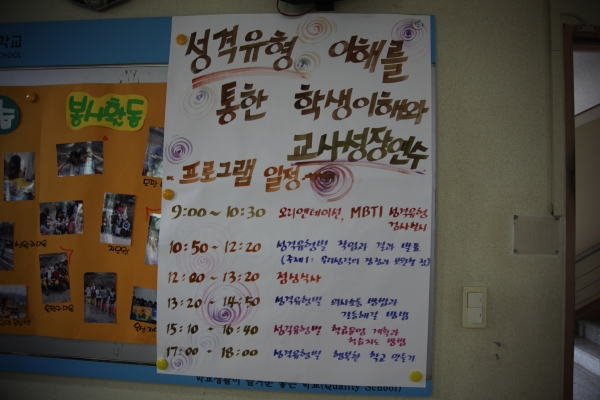 학교
SCHOOL
봉사활동
성격유형 이해를
통한 학생이해와
교사성장연수
- 프로그램 일정 -
9:00 ~ 10:30 오리엔테이션, MBTI 성격유형
검사실시
10:50 ~ 12:20 성격유형별 작업과 결과 발표
(주제1: 우리성격의 장점과 보완할 점)
12:20 ~ 13:20 점심식사
13:20 ~ 14:50 성격유형별 의사소통 방법과
갈등해결 방법
15:10 ~ 16:40 성격유형별 학급운영 계획과
학습지도 방법
17:00 ~ 18:00 성격유형별 행복한 학교 만들기
학교생활이 즐거운 좋은 학교(Quality School)